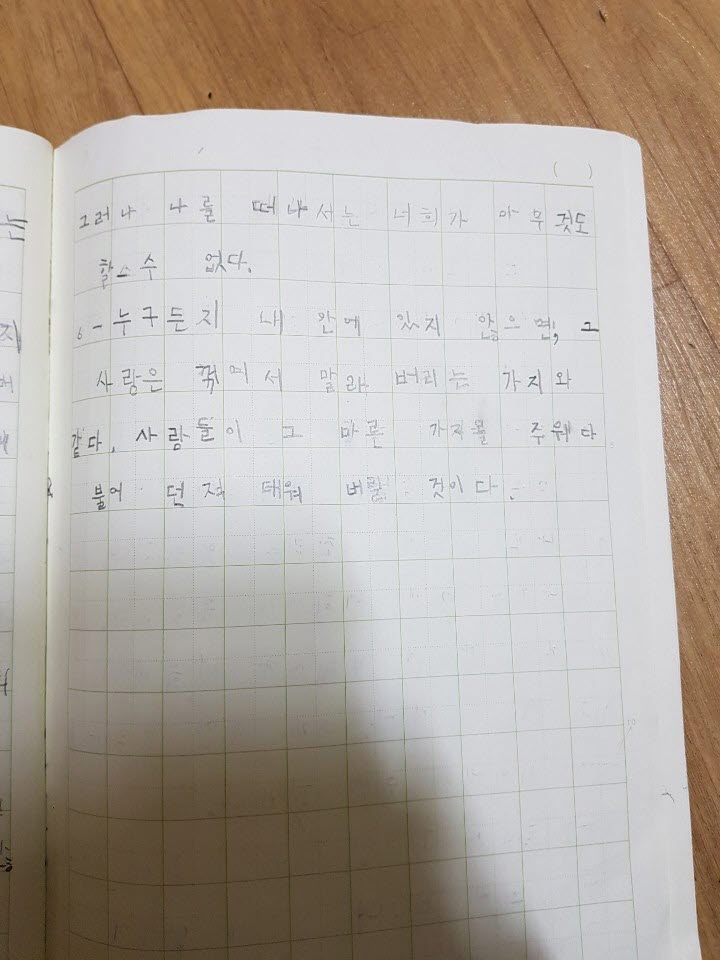 ( )
그러나 나를 떠나서는 너희가 아무것도
할 수 없다.
6-누구든지 내 안에 있지 않으면, 그
사람은 꺾여서 말라 버리는 가지와
같다. 사람들이 그 마른 가지를 주워다
불어 던져 태워 버릴 것이다.
는